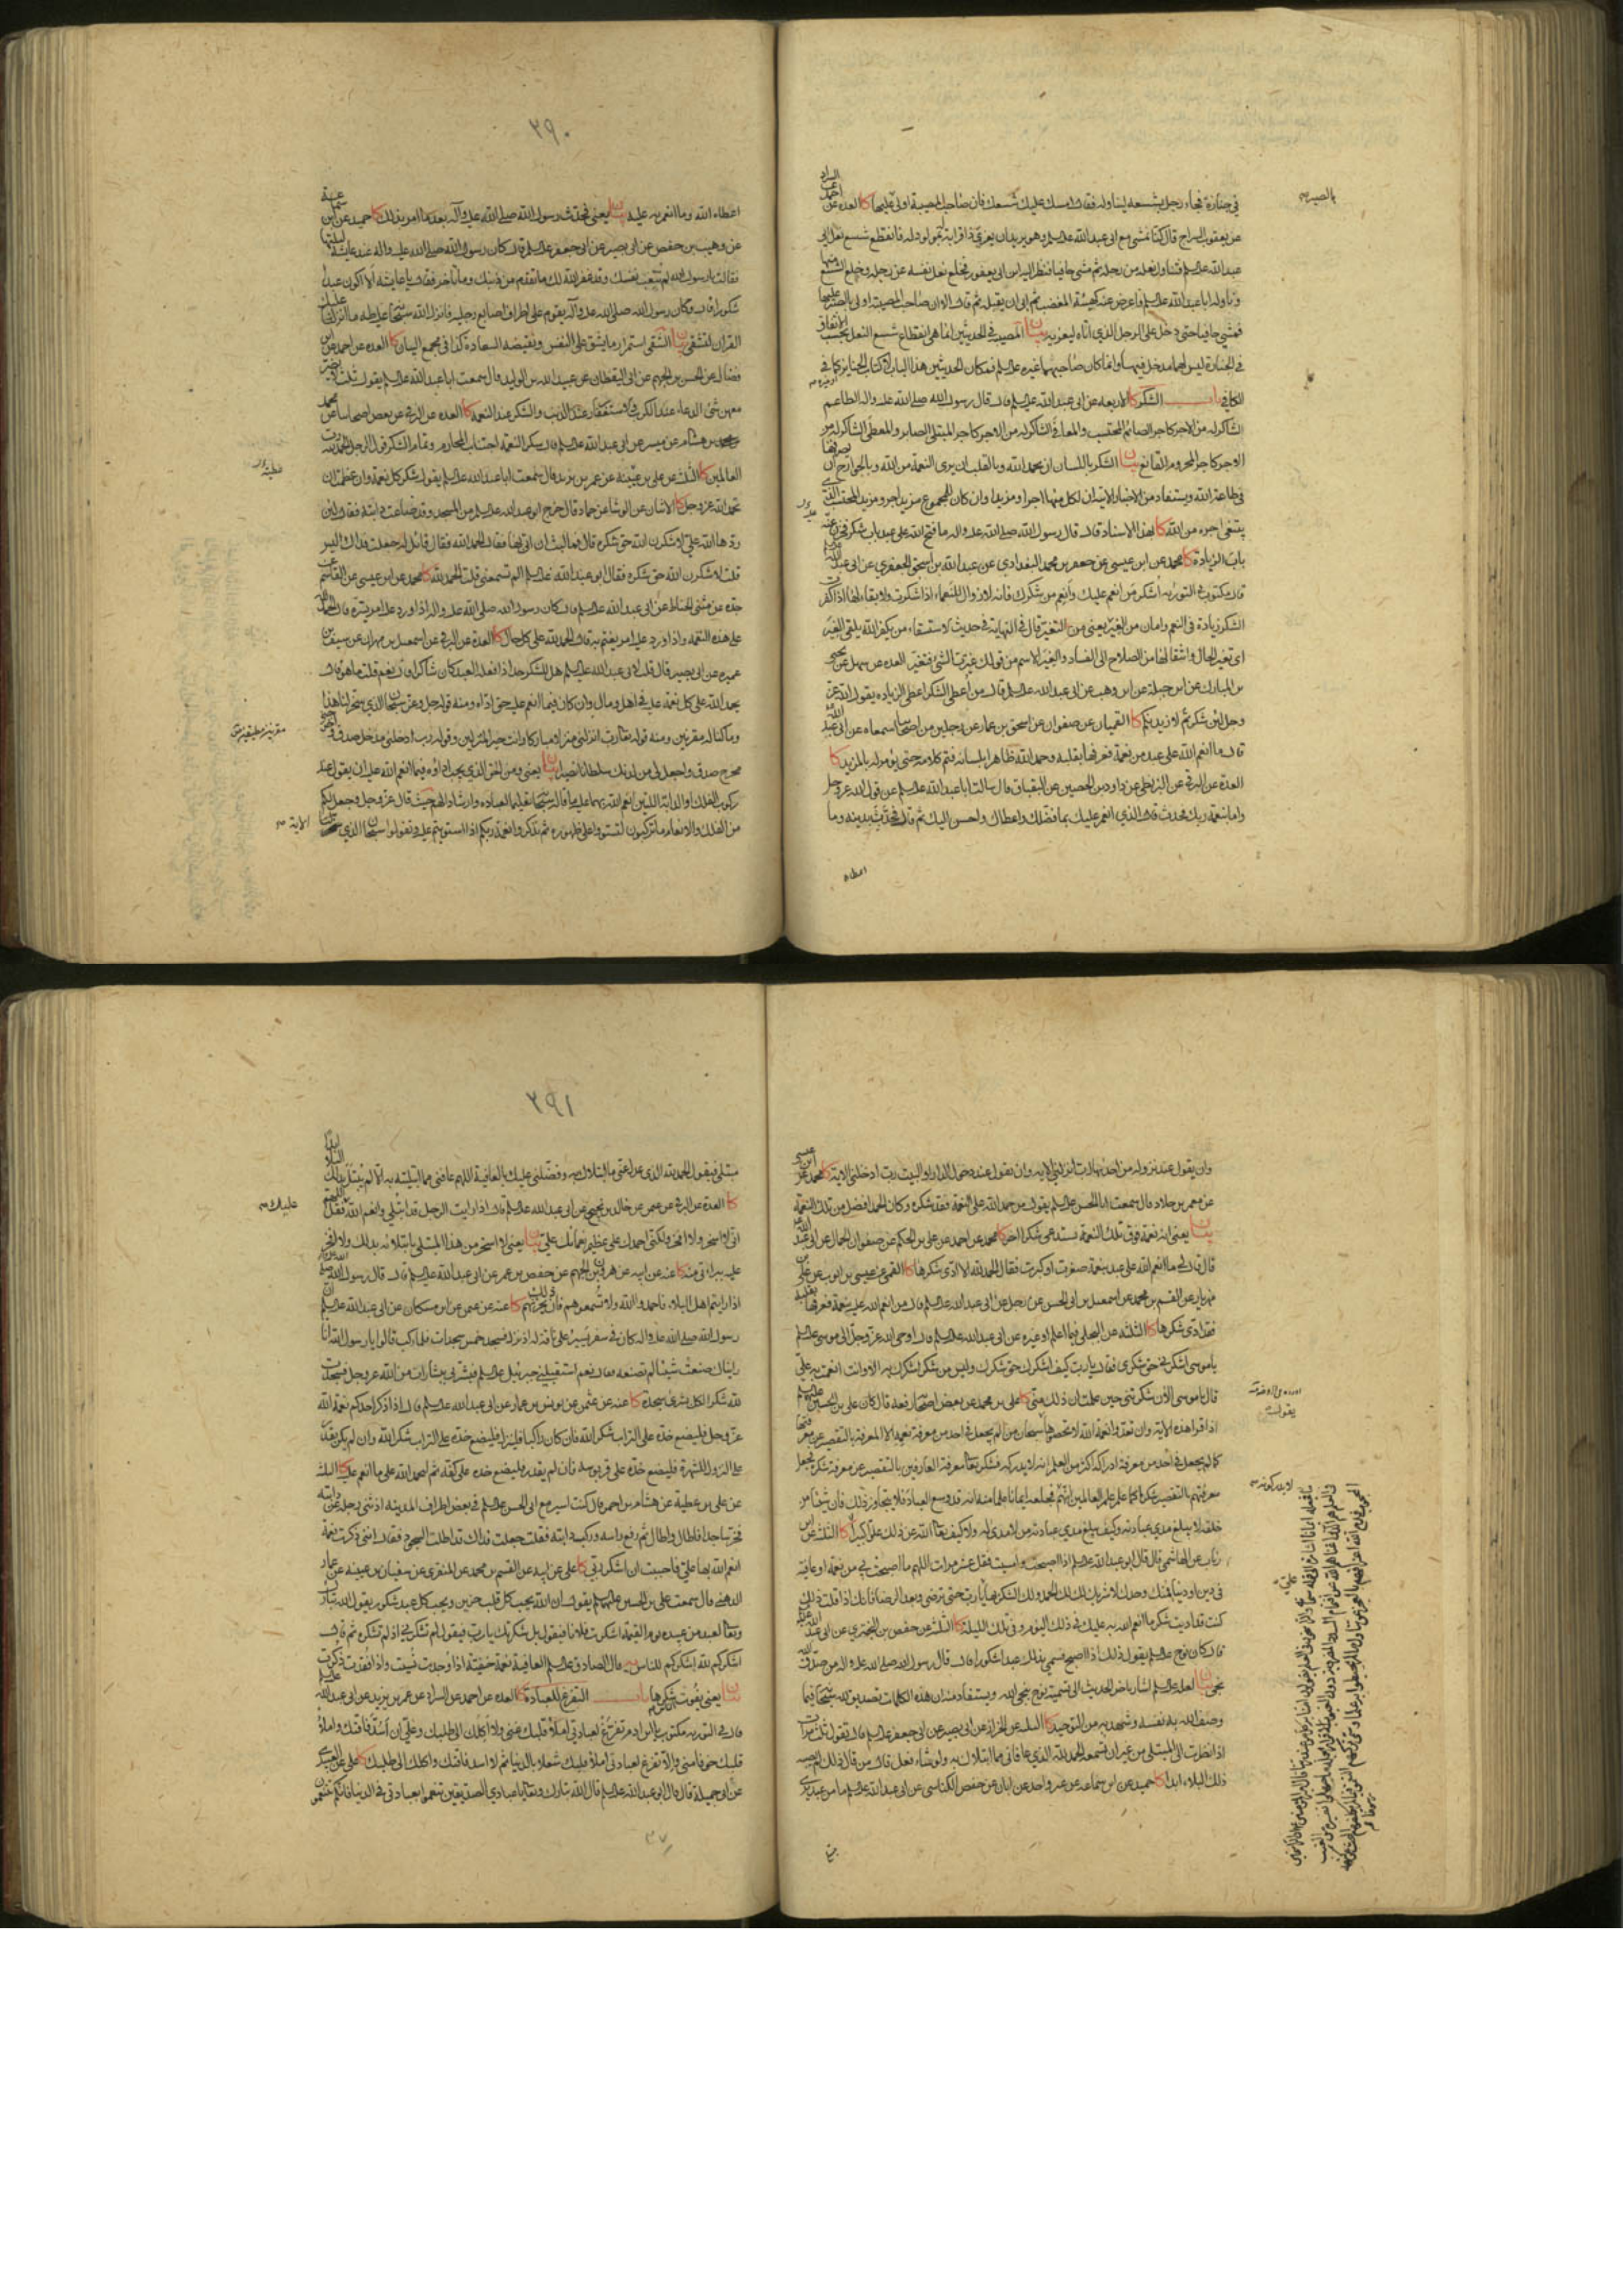 في جنازة فجاء رجل بشسعه ليناوله فقال امسك عليك شسعك فان صاحب المصيبة اولى بالصبر عليها كا العدة عن احمد عن السراد
عن يعقوب السراج قال كنا نمشي مع ابي عبد الله عليه السلم وهو يريد ان يعزي ذا قرابة له بمولود له فانقطع شسع نعل ابي
عبد الله عليه السلم فتناول نعله من رجله ثم مشى حافيا فنظر اليه ابن ابي يعفور فخلع نعل نفسه عن رجله وخلع الشسع منها
وناوله ابا عبد الله عليه السلم فاعرض عنه كهيئة المغضب ثم ابى ان يقبله ثم قال الا ان صاحب المصيبة اولى بالصبر عليها
فمشى حافيا حتى دخل على الرجل الذي اتاه ليعزيه بيان المصيبة في الحديثين انما هي انقطاع شسع النعل بحسب الاتفاق
في الجنازة ليس لهما مدخل فيها وانما كان صاحبهما غيره عليه السلم فمكان الحديثين هذا الباب لا كتاب الجنايز كما في
الكافي باب الشكر كا الاربعة عن ابي عبد الله عليه السلم قال قال رسول الله صلى الله عليه واله الطاعم
الشاكر له من الاجر كاجر الصائم المحتسب والمعافى الشاكر له من الاجر كاجر المبتلى الصابر والمعطى الشاكر له من
الاجر كاجر المحروم القانع بيان الشكر باللسان ان يحمد الله وبالقلب ان يرى النعمة من الله وبالجوارح ان يصرفها
في طاعة الله
يبتغي اجره من الله كا بهذا الاسناد قال قال رسول الله صلى الله عليه واله ما فتح الله على عبد باب شكر فخزن عنه
باب الزيادة كا محمد عن ابن عيسى عن جعفر بن محمد البغدادي عن عبد الله بن اسحق الجعفري عن ابي عبد الله
قال مكتوب في التورية اشكر من انعم عليك وانعم من شكرك فانه لا زوال للنعماء اذا شكرت ولا بقاء لها اذا كفرت
الشكر زيادة في النعم وامان من الغير يعني من التغير قال في النهاية في حديث الاستسقاء من يكفر الله يلقى الغير
اي تغير الحال وانتقالها من الصلاح الى الفساد والغير الاسم من قولك غيرت الشيء فتغير العدة عن سهل عن يحيى
بن المبارك عن ابن جبلة عن ابن وهب عن ابي عبد الله عليه السلم قال من اعطي الشكر اعطي الزيادة يقول الله عز
وجل لئن شكرتم لازيدنكم كا القميان عن صفوان عن اسحق بن عمار عن رجلين من اصحابنا سمعاه عن ابي عبد الله
قال ما انعم الله على عبد من نعمة فعرفها بقلبه وحمد الله ظاهرا بلسانه فتم كلامه حتى يؤمر له بالمزيد كا
العدة عن البرقي عن البزنطي عن داود بن الحصين عن البقباق قال سالت ابا عبد الله عليه السلم عن قول الله عز وجل
واما بنعمة ربك فحدث قال الذي انعم عليك بما فضلك واعطاك واحسن اليك ثم قال فحدث بدينه وما
اعطاه
بالصبر
٢٩٠
اعطاه الله وما انعم به عليه بيان يعني تحدث رسول الله صلى الله عليه وآله بعد ما امر بذلك كا حميد عن ابن سماعة
عن وهيب بن حفص عن ابي بصير عن ابي جعفر عليه السلم قال كان رسول الله صلى الله عليه واله عند عايشة ليلتها
فقالت يا رسول الله لم تتعب نفسك وقد غفر الله لك ما تقدم من ذنبك وما تأخر فقال يا عايشة الا اكون عبدا
شكورا قال وكان رسول الله صلى الله عليه وآله يقوم على اطراف اصابع رجليه فانزل الله سبحانه طه ما انزلنا عليك
القران لتشقى بيان الشقى استمرار ما يشق على النفس ونقيضه السعادة كذا في مجمع البيان كا العدة عن احمد عن ابن
فضال عن الحسن بن الجهم عن ابي اليقظان عن عبيد الله بن الوليد قال سمعت ابا عبد الله عليه السلم يقول ثلث لا يضر
معهن شيء الدعاء عند الكرب والاستغفار عند الذنب والشكر عند النعمة كا العدة عن البرقي عن بعض اصحابنا عن محمد
بن هشام عن ميسر عن ابي عبد الله عليه السلم قال شكر النعمة اجتناب المحارم وتمام الشكر قول الرجل الحمد لله رب
العالمين كا الثلثة عن علي بن عيينة عن عمر بن يزيد قال سمعت ابا عبد الله عليه السلم يقول شكر كل نعمة وان عظمت ان
تحمد الله عز وجل كا الاثنان عن الوشاء عن حماد قال خرج ابو عبد الله عليه السلم من المسجد وقد ضاعت دابته فقال لئن
ردها الله علي لاشكرن الله حق شكره قال فما لبث ان اتي بها فقال الحمد لله فقال قائل له جعلت فداك اليس
قلت لاشكرن الله حق شكره فقال ابو عبد الله عليه السلم الم تسمعني قلت الحمد لله كا محمد عن ابن عيسى عن القاسم عن
جده عن مثنى الحناط عن ابي عبد الله عليه السلم قال كان رسول الله صلى الله عليه واله اذا ورد عليه امر يسره قال الحمد لله
على هذه النعمة واذا ورد عليه امر يغتم به قال الحمد لله على كل حال كا العدة عن البرقي عن اسمعيل بن مهران عن سيف بن
عميرة عن ابي بصير قال قلت لابي عبد الله عليه السلم هل للشكر حد اذا فعله العبد كان شاكرا قال نعم قلت ما هو قال
يحمد الله على كل نعمة عليه في اهل ومال وان كان فيما انعم عليه حق اداه ومنه قوله جل وعز سبحان الذي سخر لنا هذا
وما كنا له مقرنين ومنه قوله تعالى رب انزلني منزلا مباركا وانت خير المنزلين وقوله رب ادخلني مدخل صدق واخرجني
مخرج صدق واجعل لي من لدنك سلطانا نصيرا بيان يعني ومن الحق الذي يجب اداؤه فيما انعم الله عليه ان يقول عند
ركوب الفلك او الدابة اللتين انعم الله بهما عليه ما قاله سبحانه تعليما لعباده وارشادا لهم حيث قال عز وجل وجعل لكم
من الفلك والانعام ما تركبون لتستووا على ظهوره ثم تذكروا نعمة ربكم اذا استويتم عليه وتقولوا سبحان الذي سخر
مقرنين مطيقين
الاية
وان يقول عند نزوله من احدهما رب انزلني الاية وان يقول عند دخول الدار او البيت رب ادخلني الاية كا محمد عن ابن عيسى
عن معمر بن خلاد قال سمعت ابا الحسن عليه السلم يقول من حمد الله على النعمة فقد شكره وكان الحمد افضل من تلك النعمة
بيان يعني انه نعمة فوق تلك النعمة يستدعي شكرا اخر كا محمد عن احمد عن علي بن الحكم عن صفوان الجمال عن ابي عبد الله
قال قال لي ما انعم الله على عبد بنعمة صغرت او كبرت فقال الحمد لله الا ادى شكرها كا القمي عن عيسى بن ايوب عن علي بن
مهزيار عن القسم بن محمد عن اسمعيل بن ابي الحسن عن رجل عن ابي عبد الله عليه السلم قال من انعم الله عليه بنعمة فعرفها بقلبه
فقد ادى شكرها كا الثلثة عن البجلي فيما اعلم او غيره عن ابي عبد الله عليه السلم قال اوحى الله عز وجل الى موسى عليه السلم
يا موسى اشكرني حق شكري فقال يا رب كيف اشكرك حق شكرك وليس من شكر اشكرك به الا وانت انعمت به علي
قال يا موسى الان شكرتني حين علمت ان ذلك مني كا علي بن محمد عن بعض اصحابه رفعه قال كان علي بن الحسين عليهما السلم
اذا قرا هذه الاية وان تعدوا نعمة الله لا تحصوها سبحان من لم يجعل في احد من معرفة نعمه الا المعرفة بالتقصير عن معرفتها
كما لم يجعل في احد من معرفة ادراكه اكثر من العلم انه لا يدركه فشكر تعالى معرفة العارفين بالتقصير عن معرفة شكره فجعل
معرفتهم بالتقصير شكرا كما علم علم العالمين انهم فجعله ايمانا علما منه انه قد وسع العباد فلا يتجاوز ذلك فان شيئا من
خلقه لا يبلغ مدى عبادته وكيف يبلغ مدى عبادته من لا مدى له ولا كيف تعالى الله عن ذلك علوا كبيرا كا الثلثة عن ابن
رئاب عن الهاشمي قال قال ابو عبد الله عليه السلم اذا اصبحت وامسيت فقل عشر مرات اللهم ما اصبحت بي من نعمة او عافية
في دين او دنيا فمنك وحدك لا شريك لك لك الحمد ولك الشكر بها يا رب حتى ترضى وبعد الرضا فانك اذا قلت ذلك
كنت قد اديت شكر ما انعم الله به عليك في ذلك اليوم وفي تلك الليلة كا الثلثة عن حفص بن البختري عن ابي عبد الله
قال كان نوح عليه السلم يقول ذلك اذا اصبح فسمي بذلك عبدا شكورا قال وقال رسول الله صلى الله عليه واله من صدق الله
نجى بيان لعله عليه السلم اشار باخر الحديث الى تسمية نوح بنجي الله ويستفاد منه ان هذه الكلمات تصديق لله سبحانه فيما
وصف الله به نفسه وشهد به من التوحيد كا الثلثة عن الخراز عن ابي بصير عن ابي جعفر عليه السلم قال تقول ثلث مرات
اذا نظرت الى المبتلى من غير ان تسمعه الحمد لله الذي عافاني مما ابتلاك به ولو شاء فعل قال من قال ذلك لم يصبه
ذلك البلاء ابدا كا حميد عن ابن سماعة عن غير واحد عن ابان عن حفص الكناسي عن ابي عبد الله عليه السلم ما من عبد يرى
٢٩١
مبتلى فيقول الحمد لله الذي عدل عني ما ابتلاك به وفضلني عليك بالعافية اللهم عافني مما ابتليته به الا لم يبتل بذلك البلاء ابدا
كا العدة عن البرقي عن عثمن عن خالد بن نجيح عن ابي عبد الله عليه السلم قال اذا رايت الرجل قد ابتلي وانعم الله عليك فقل اللهم
اني لا اسخر ولا افخر ولكني احمدك على عظيم نعمائك علي بيان يعني لا اسخر من هذا المبتلى بابتلائه بذلك ولا افخر
عليه ببرائتي منه كا عنه عن ابيه عن هرون بن الجهم عن حفص بن عمر عن ابي عبد الله عليه السلم قال قال رسول الله صلى الله عليه واله
اذا رايتم اهل البلاء فاحمدوا الله ولا تسمعوهم فان ذلك يحزنهم كا عنه عن عثمن عن ابن مسكان عن ابي عبد الله عليه السلم ان
رسول الله صلى الله عليه واله كان في سفر يسير على ناقة له اذ نزل فسجد خمس سجدات فلما ركب قالوا يا رسول الله انا
رايناك صنعت شيئا لم تصنعه فقال نعم استقبلني جبرئيل عليه السلم فبشرني ببشارات من الله عز وجل فسجدت
لله شكرا لكل بشرى سجدة كا عنه عن عثمن عن يونس بن عمار عن ابي عبد الله عليه السلم قال اذا ذكر احدكم نعمة الله
عز وجل فليضع خده على التراب شكرا لله فان كان راكبا فلينزل فليضع خده على التراب شكرا لله وان لم يكن يقدر
على النزول للشهرة فليضع خده على قربوسه فان لم يقدر فليضع خده على كفه ثم ليحمد الله على ما انعم عليه كا الثلثة
عن علي بن عطية عن هشام بن احمر قال كنت اسير مع ابي الحسن عليه السلم في بعض اطراف المدينة اذ ثنى رجله عن دابته
فخر ساجدا فاطال واطال ثم رفع راسه وركب دابته فقلت جعلت فداك قد اطلت السجود فقال انني ذكرت نعمة
انعم الله بها علي فاحببت ان اشكر ربي كا علي عن ابيه عن القسم بن محمد عن المنقري عن سفيان بن عيينة عن عمار
الدهني قال سمعت علي بن الحسين عليهما السلم يقول ان الله يحب كل قلب حزين ويحب كل عبد شكور يقول الله تبارك
وتعالى لعبد من عبيده يوم القيمة اشكرت فلانا فيقول بل شكرتك يا رب فيقول لم تشكرني اذ لم تشكره ثم قال
اشكركم لله اشكركم للناس يه قال الصادق عليه السلم العافية نعمة خفية اذا وجدت نسيت واذا فقدت ذكرت
بيان يعني يفوت شكرها باب التفرغ للعبادة كا العدة عن احمد عن السراد عن عمر بن يزيد عن ابي عبد الله عليه السلم
قال في التورية مكتوب يا ابن ادم تفرغ لعبادتي املأ قلبك غنى ولا اكلك الى طلبك وعلي ان اسد فاقتك واملأ
قلبك خوفا مني والا تفرغ لعبادتي املأ قلبك شغلا بالدنيا ثم لا اسد فاقتك واكلك الى طلبك كا علي عن العبيدي
عن ابي جميلة قال قال ابو عبد الله عليه السلم قال الله تبارك وتعالى يا عبادي الصديقين تنعموا بعبادتي في الدنيا فانكم تتنعمون